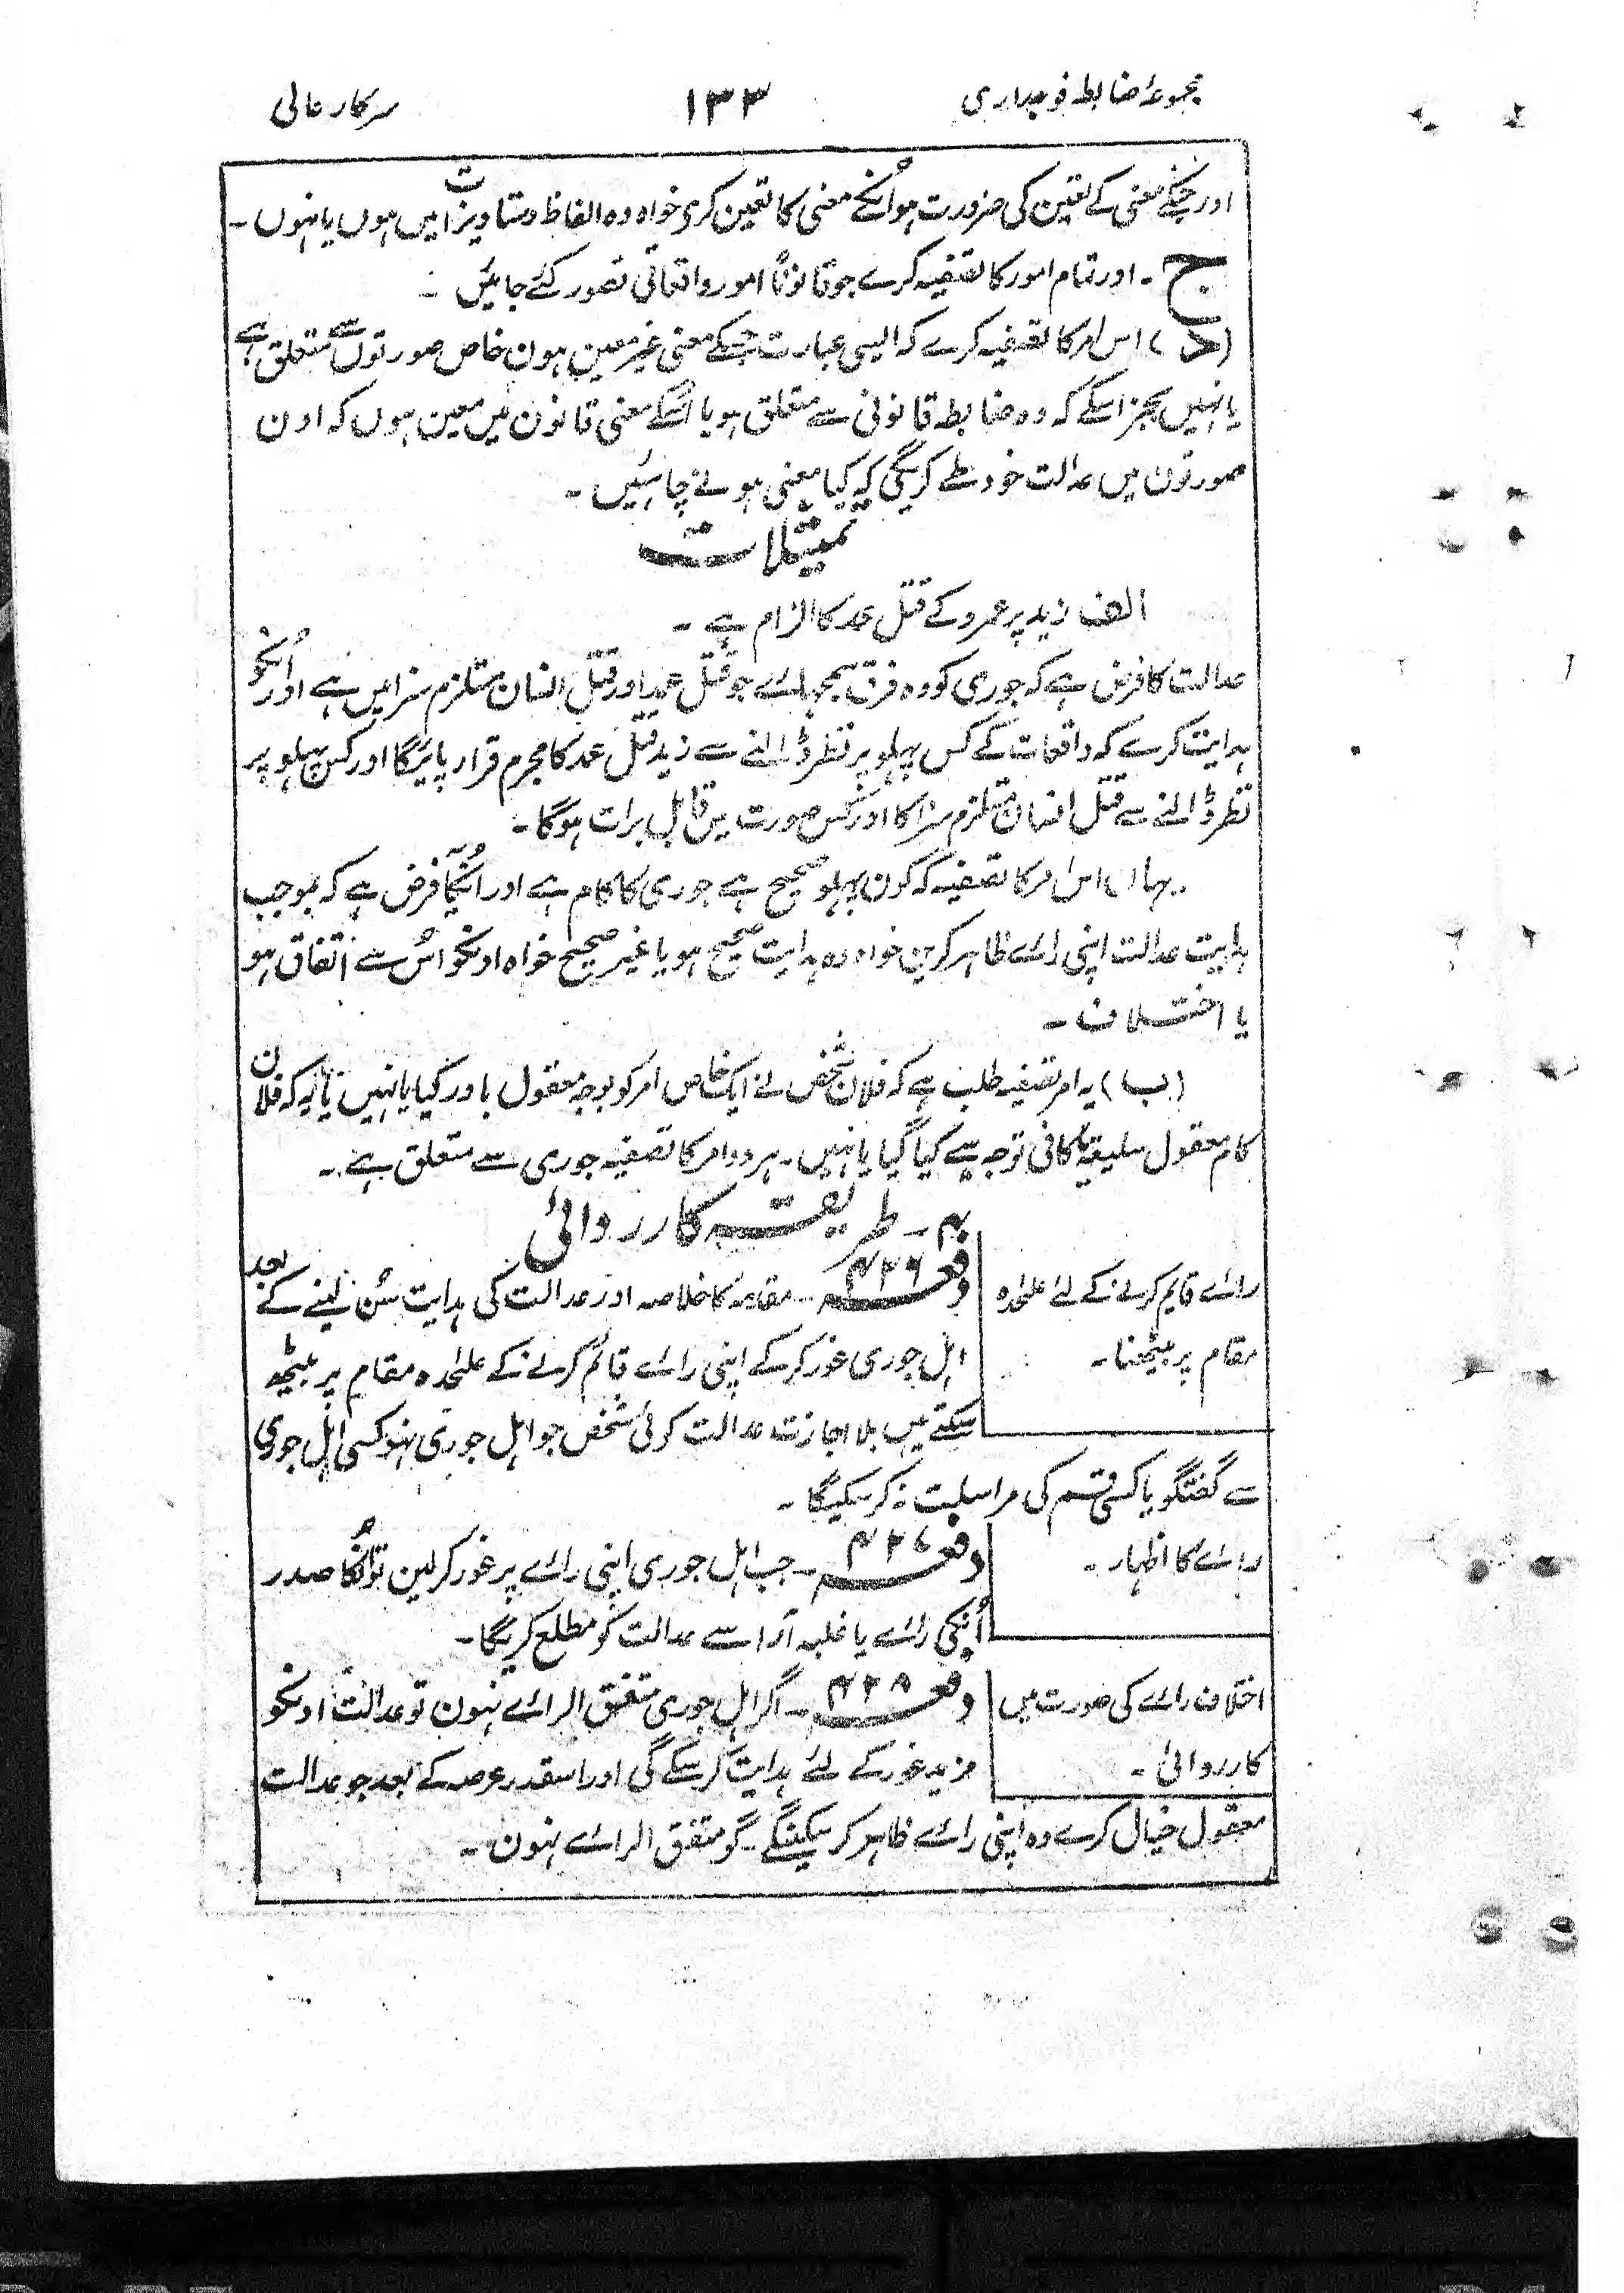 مجموعۂ ضابطہ فوجداری ۱۳۳ سرکار عالی
اور جنکے معنی کے تعین کی ضرورت ہو اُنکے معنی کا تعین کری خواہ وہ الفاظ دستاویزات میں ہوں یا نہوں۔
ج۔ اور تمام امور کا تصفیہ کرے جو قانوناً امور واقعاتی تصور کئے جائیں ۔
(د) اس امر کا تصفیہ کرے کہ ایسی عبارت جسکے معنی غیر معین ہون خاص صورتوں سے متعلق ہے
یا نہیں بجز اسکے کہ وہ ضابطہ قانونی سے متعلق ہو یا اُسکے معنی قانون میں معین ہوں کہ اون
صورتون میں عدالت خود طے کریگی کہ کیا معنی ہونے چاہئیں۔
تمثیلات
الف زید پر عمرو کے قتل عمد کا الزام ہے ۔
عدالت کا فرض ہے کہ جوری کو وہ فرق سمجھادے جو قتل عمد اور قتل انسان مستلزم سزا میں ہے اور اُنکو
ہدایت کرے کہ واقعات کے کس پہلو پر نظر ڈالنے سے زید قتل عمد کا مجرم قرار پائیگا اور کس پہلو پر
نظر ڈالنے سے قتل انسان مستلزم سزا کا اور کس صورت میں قابل برات ہوگا۔
یہاں اس امر کا تصفیہ کہ کون پہلو صحیح ہے جوری کا کام ہے اور اُنکا فرض ہے کہ بموجب
ہدایت عدالت اپنی رائے ظاہر کرین خواہ وہ ہدایت صحیح ہو یا غیر صحیح خواہ اونکو اُس سے اتفاق ہو
یا اختلاف ۔
(ب) یہ امر تصفیہ طلب ہے کہ فلان شخص نے ایک خاص امر کو بوجہ معقول باور کیا یا نہیں یا یہ کہ فلان
کام معقول سلیقہ یا کافی توجہ سے کیا گیا یا نہیں۔ ہر دو امر کا تصفیہ جوری سے متعلق ہے ۔
۴۔ طریقہ کارروائی
رائے قایم کرنے کے لئے علٰحدہ
مقام پر بیٹھنا۔
دفعہ ۴۲۶۔ مقدمہ کا خلاصہ اور عدالت کی ہدایت سُن لینے کے بعد
اہل جوری غور کرکے اپنی رائے قائم کرنے کے علٰحدہ مقام پر بیٹھ
سکتے ہیں بلا اجازت عدالت کوئی شخص جو اہل جوری نہو کسی اہل جوری
سے گفتگو یا کسی قسم کی مراسلت نہ کرسکیگا ۔
رائے کا اظہار ۔
دفعہ ۴۲۷۔ جب اہل جوری اپنی رائے پر غور کرلین تو اُنکا صدر
اُنکی رائے یا غلبہ آرا سے عدالت کو مطلع کریگا۔
اختلاف رائے کی صورت میں
کارروائی ۔
دفعہ ۴۲۸۔ اگر اہل جوری متفق الرائے نہون تو عدالت اونکو
مزید غور کے لئے ہدایت کرسکے گی اور اسقدر عرصہ کے بعد جو عدالت
معقول خیال کرے وہ اپنی رائے ظاہر کرسکینگے۔ گو متفق الرائے نہون ۔